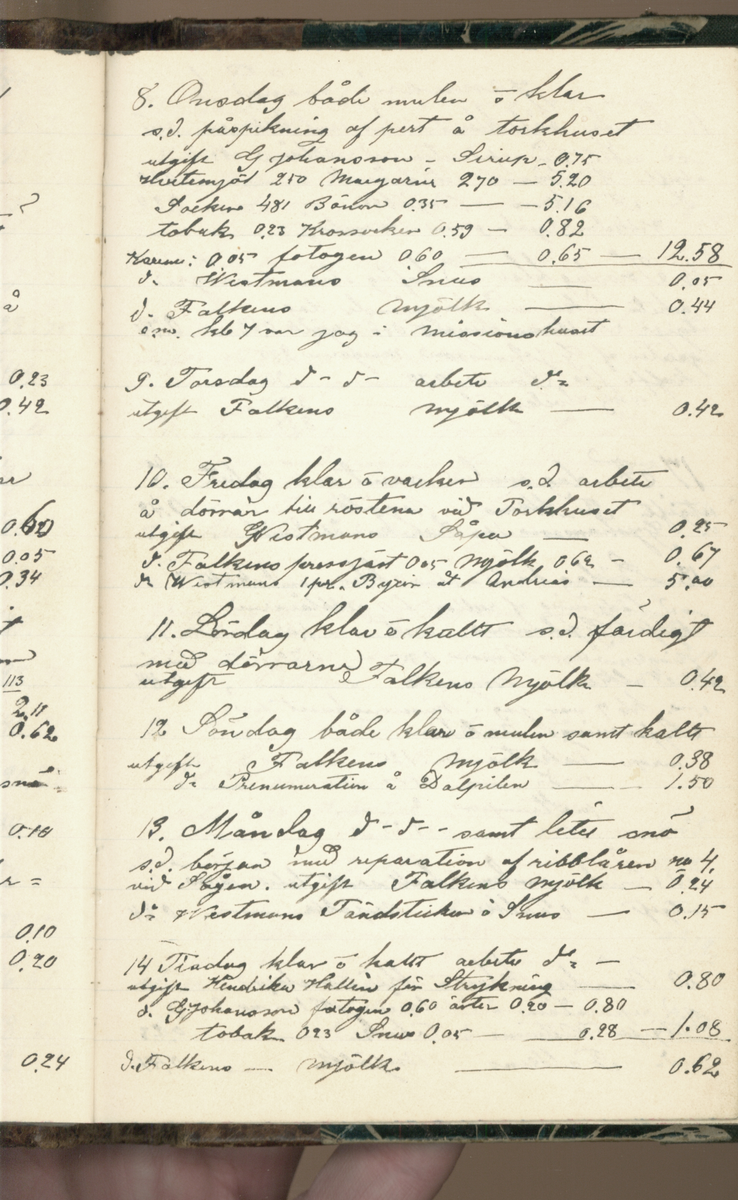 0.23
0.42
0.05
0.34
113
2.11
0.62
0.10
0.10
0.20
0.24
8. Onsdag både mulen o klar
s.d. påspikning af pert å torkhuset
utgift G Johansson – Sirup – 0.75
Hvetemjöl 250 Margarin 270 — 5.20
Socker 481 Bönor 0.35 — 5.16
tobak 0.23 0.59 – 0.82
0.05 fotogen 0.60 — 0.65 — 12.58
d. Westmans Snus — 0.05
d. Falkens Mjölk — 0.44
e.m. kl 7 var jag i missionshuset
9. Torsdag d– d– arbete do
utgift Falkens Mjölk — 0.42
10. Fredag klar o vacker s.d. arbete
å dörrar till röstena vid Torkhuset
utgift Westmans Såpa — 0.25
d. Falkens pressjäst 0.05 Mjölk 0.62 – 0.67
do Westmans 1 pr. Byxor åt Andreas — 5.00
11. Lördag klar o kallt s.d. färdigt
med dörrarne
utgift Falkens Mjölk — 0.42
12 Söndag både klar o mulen samt kallt
utgift Falkens Mjölk — 0.38
do Prenumeration å Dalpilen — 1.50
13. Måndag d– d– – samt litet snö
s.d. början med reparation af ribblåren no 4.
vid Sågen. utgift Falkens Mjölk — 0.24
do Westmans Tändstickor o Snus — 0.15
14 Tisdag klar o kallt arbete do –
utgift Hendrika Hallin för Strykning — 0.80
d. G Johansson fotogen 0.60 ärter 0.20 – 0.80
tobak 0.23 Snus 0.05 — 0.28 — 1.08
d. Falkens — Mjölk — 0.62